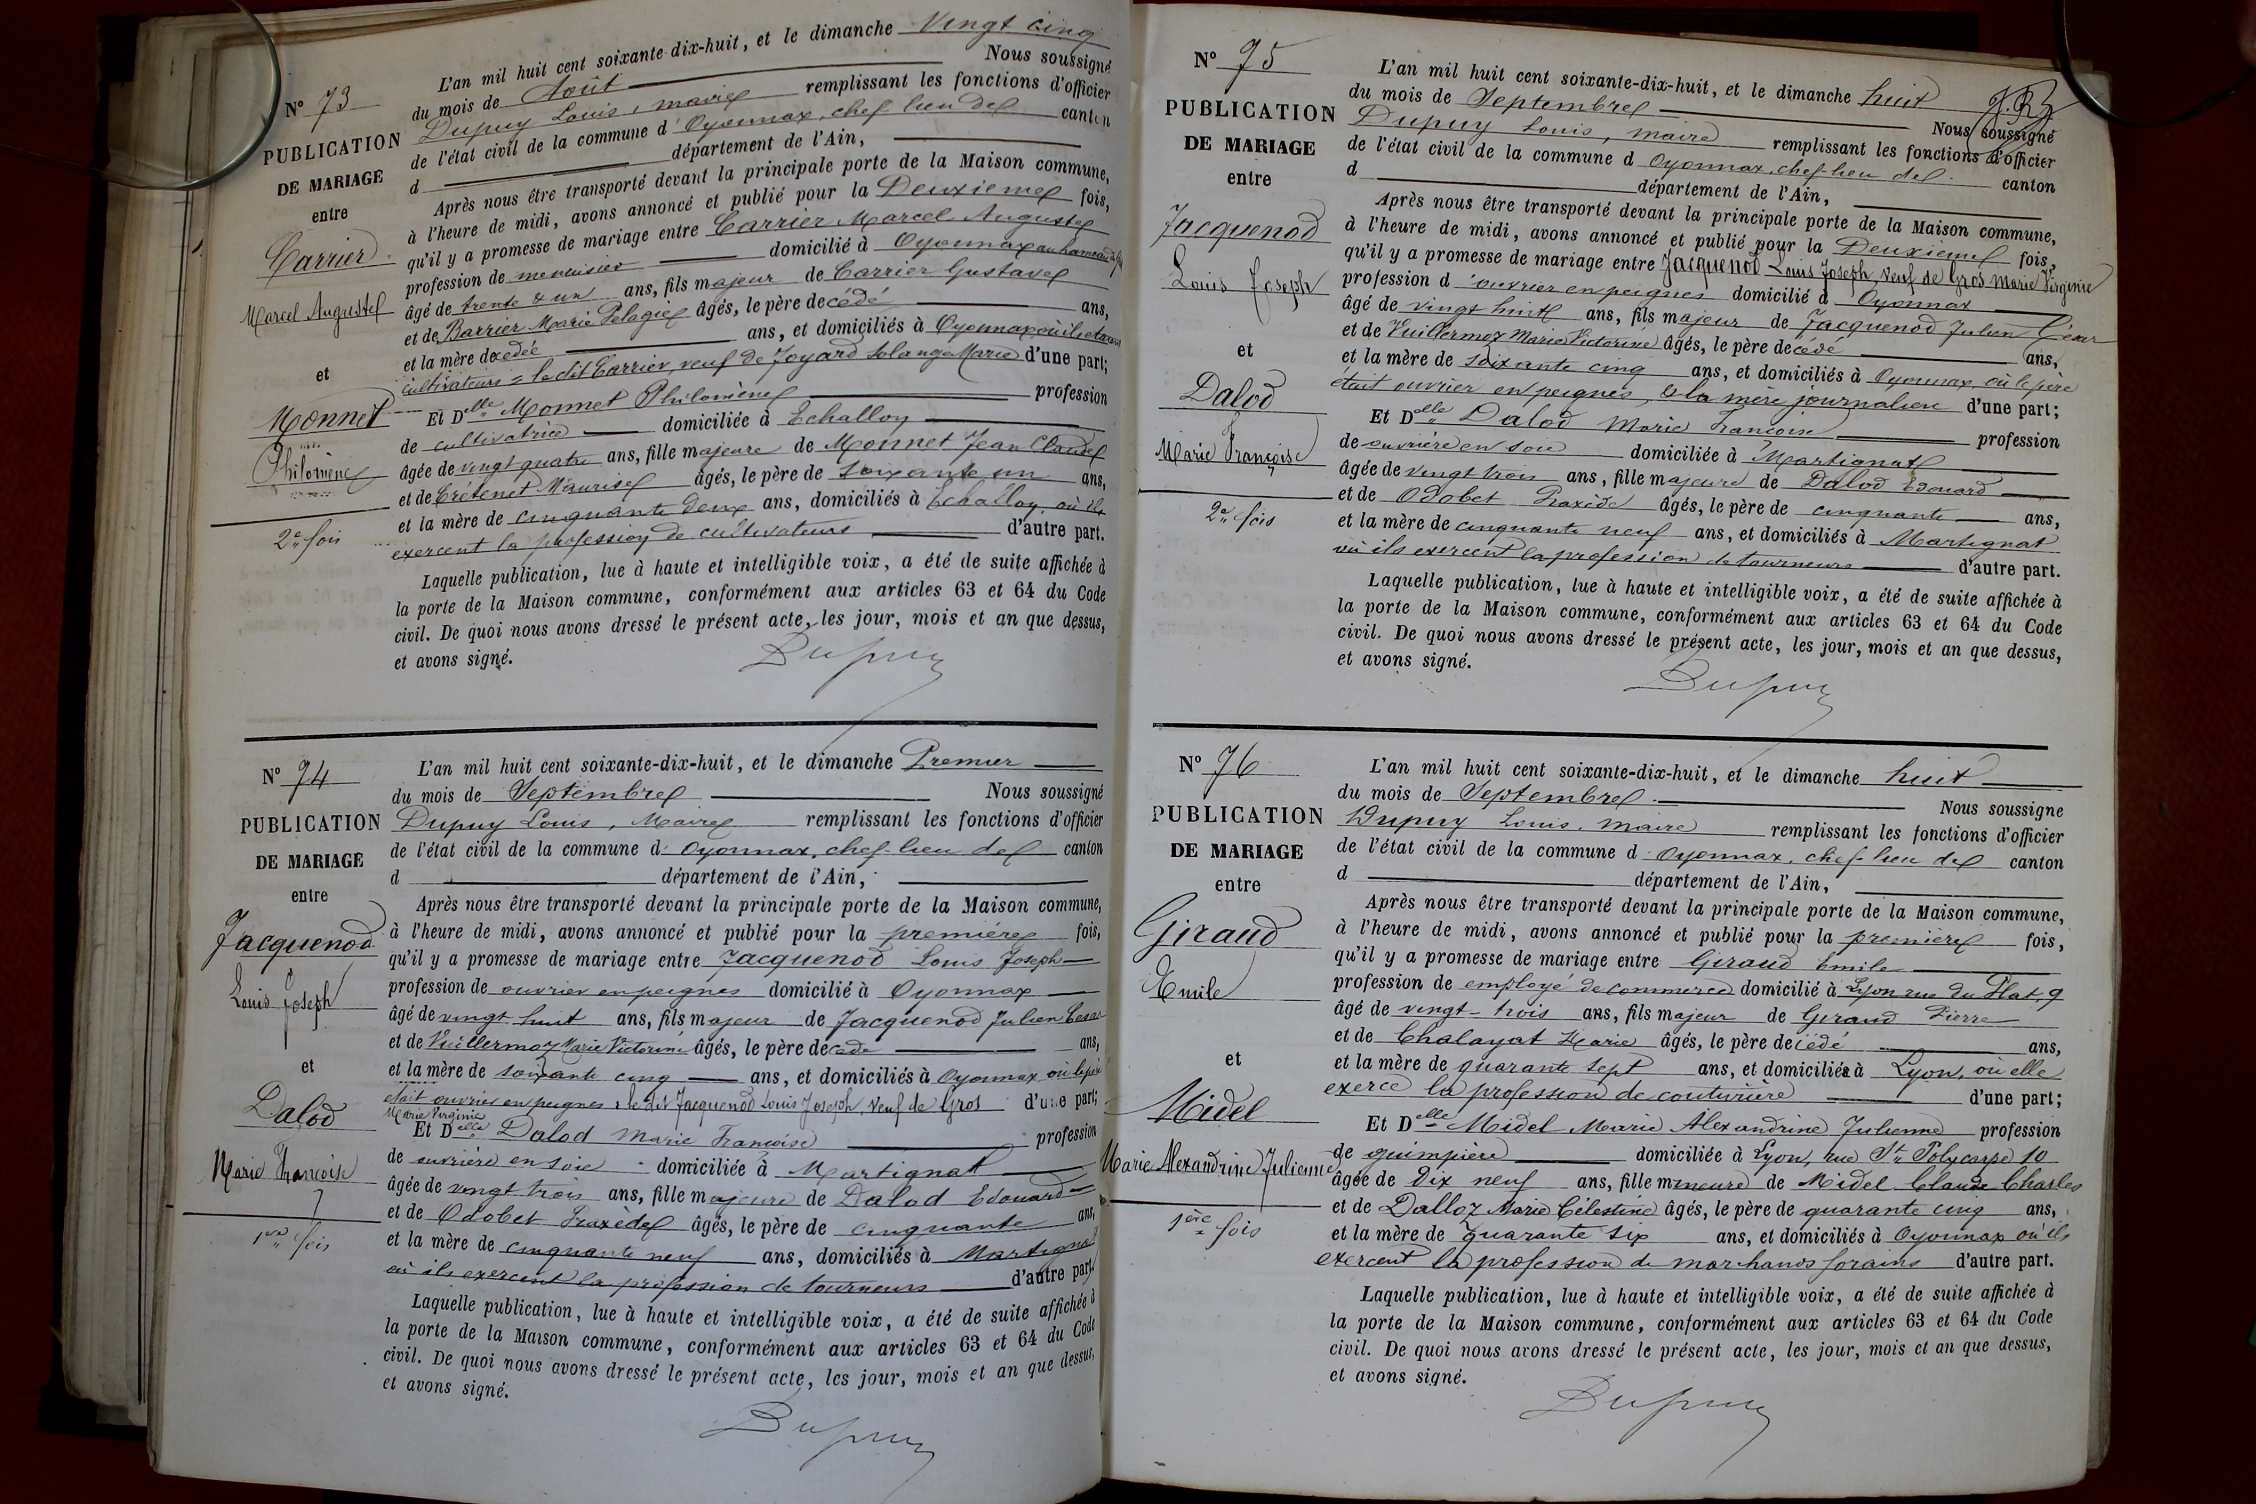 N° 73
PUBLICATION
DE MARIAGE
entre
Carrier
Marcel Auguste
et
Monnet
Philomène
2e fois
L'an mil huit cent soixante-dix-huit, et le dimanche Vingt cinq
du mois de Août Nous soussigné
Dupuy Louis, maire remplissant les fonctions d'officier
de l'état civil de la commune d'Oyonnax, chef-lieu de canton
d département de l'Ain,
Après nous être transporté devant la principale porte de la Maison commune,
à l'heure de midi, avons annoncé et publié pour la Deuxième fois,
qu'il y a promesse de mariage entre Carrier Marcel Auguste
profession de menuisier domicilié à Oyonnax au hameau
âgé de trente & un ans, fils majeur de Carrier Gustave
et de Barrier Marie Pelagie âgés, le père décédé ans,
et la mère décédée ans, et domiciliés à Oyonnax où ils étaient
cultivateurs = le dit Carrier, veuf de Joyard Solange Marie d'une part;
Et Delle Monnet Philomène profession
de cultivatrice domiciliée à Echallon
âgée de vingt quatre ans, fille majeure de Monnet Jean Claude
et de Crétenet Maurise âgés, le père de soixante un ans,
et la mère de cinquante deux ans, domiciliés à Echallon, où ils
exercent la profession de cultivateurs d'autre part.
Laquelle publication, lue à haute et intelligible voix, a été de suite affichée à
la porte de la Maison commune, conformément aux articles 63 et 64 du Code
civil. De quoi nous avons dressé le présent acte, les jour, mois et an que dessus,
et avons signé.
Dupuy
N° 74
PUBLICATION
DE MARIAGE
entre
Jacquenod
Louis Joseph
et
Dalod
Marie Françoise
1ère fois
L'an mil huit cent soixante-dix-huit, et le dimanche Premier
du mois de Septembre Nous soussigné
Dupuy Louis, Maire remplissant les fonctions d'officier
de l'état civil de la commune d'Oyonnax, chef-lieu de canton
d département de l'Ain,
Après nous être transporté devant la principale porte de la Maison commune,
à l'heure de midi, avons annoncé et publié pour la première fois,
qu'il y a promesse de mariage entre Jacquenod Louis Joseph
profession de ouvrier en peignes domicilié à Oyonnax
âgé de vingt huit ans, fils majeur de Jacquenod Julien Cesar
et de Vuillermoz Marie Victorine âgés, le père décédé ans,
et la mère de soixante cinq ans, et domiciliés à Oyonnax où le père
était ouvrier en peignes, le dit Jacquenod Louis Joseph, Veuf de Gros d'une part;
Marie Virginie
Et Delle Dalod Marie Françoise profession
de ouvrière en soie domiciliée à Martignat
âgée de vingt trois ans, fille majeure de Dalod Edouard
et de Odobet Praxède âgés, le père de cinquante ans,
et la mère de cinquante neuf ans, domiciliés à Martignat
où ils exercent la profession de tourneurs d'autre part.
Laquelle publication, lue à haute et intelligible voix, a été de suite affichée à
la porte de la Maison commune, conformément aux articles 63 et 64 du Code
civil. De quoi nous avons dressé le présent acte, les jour, mois et an que dessus,
et avons signé.
Dupuy
N° 75
PUBLICATION
DE MARIAGE
entre
Jacquenod
Louis Joseph
et
Dalod
Marie Françoise
2e fois
L'an mil huit cent soixante-dix-huit, et le dimanche huit
du mois de Septembre Nous soussigné
Dupuy Louis, maire remplissant les fonctions d'officier
de l'état civil de la commune d Oyonnax, chef-lieu de canton
d département de l'Ain,
Après nous être transporté devant la principale porte de la Maison commune,
à l'heure de midi, avons annoncé et publié pour la Deuxième fois,
qu'il y a promesse de mariage entre Jacquenod Louis Joseph, Veuf de Gros Marie Virginie
profession d'ouvrier en peignes domicilié à Oyonnax
âgé de vingt huit ans, fils majeur de Jacquenod Julien César
et de Vuillermoz Marie Victorine âgés, le père décédé ans,
et la mère de soixante cinq ans, et domiciliés à Oyonnax, où le père
était ouvrier en peignes, & la mère journalière d'une part;
Et Delle Dalod Marie Françoise profession
de ouvrière en soie domiciliée à Martignat
âgée de vingt trois ans, fille majeure de Dalod Edouard
et de Odobet Praxède âgés, le père de cinquante ans,
et la mère de cinquante neuf ans, et domiciliés à Martignat
où ils exercent la profession de tourneurs d'autre part.
Laquelle publication, lue à haute et intelligible voix, a été de suite affichée à
la porte de la Maison commune, conformément aux articles 63 et 64 du Code
civil. De quoi nous avons dressé le présent acte, les jour, mois et an que dessus,
et avons signé.
Dupuy
N° 76
PUBLICATION
DE MARIAGE
entre
Giraud
Emile
et
Midel
Marie Alexandrine Julienne
1ère fois
L'an mil huit cent soixante-dix-huit, et le dimanche huit
du mois de Septembre Nous soussigné
Dupuy Louis, maire remplissant les fonctions d'officier
de l'état civil de la commune d Oyonnax, chef-lieu de canton
d département de l'Ain,
Après nous être transporté devant la principale porte de la Maison commune,
à l'heure de midi, avons annoncé et publié pour la première fois,
qu'il y a promesse de mariage entre Giraud Emile
profession de employé de commerce domicilié à Lyon rue du Plat, 9
âgé de vingt-trois ans, fils majeur de Giraud Pierre
et de Chalayat Marie âgés, le père décédé ans,
et la mère de quarante sept ans, et domiciliée à Lyon, où elle
exerce la profession de couturière d'une part;
Et Delle Midel Marie Alexandrine Julienne profession
de guimpière domiciliée à Lyon, rue St Polycarpe 10
âgée de Dix neuf ans, fille mineure de Midel Claude Charles
et de Dalloz Marie Célestine âgés, le père de quarante cinq ans,
et la mère de quarante six ans, et domiciliés à Oyonnax où ils
exercent la profession de marchands forains d'autre part.
Laquelle publication, lue à haute et intelligible voix, a été de suite affichée à
la porte de la Maison commune, conformément aux articles 63 et 64 du Code
civil. De quoi nous avons dressé le présent acte, les jour, mois et an que dessus,
et avons signé.
Dupuy